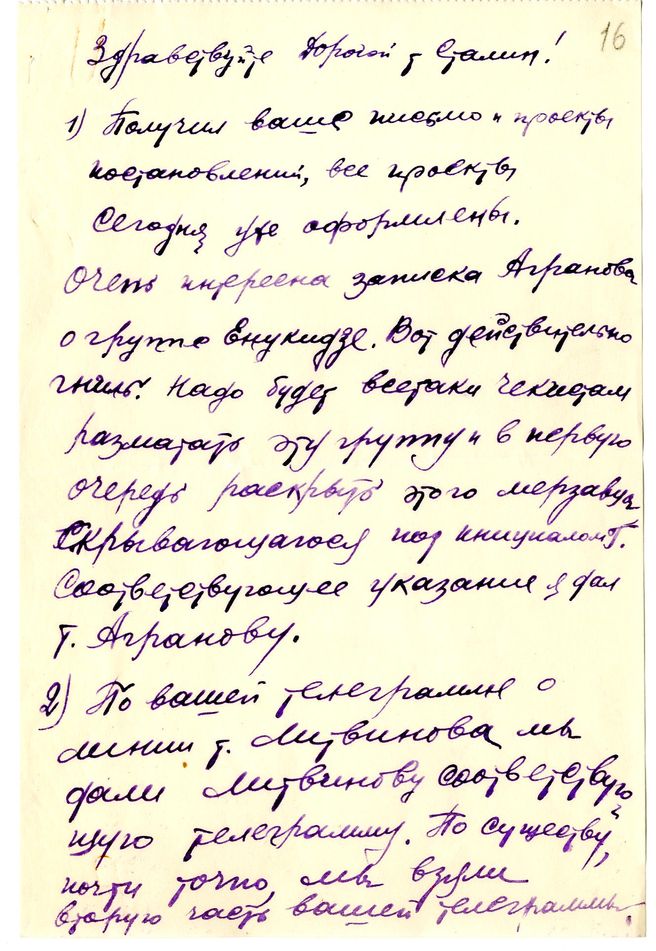 16
Здравствуйте Дорогой т Сталин!
1) Получил ваше письмо и проекты
постановлений, все проекты
сегодня уже оформлены.
Очень интересна записка Агранова
о группе Енукидзе. Вот действительно
гниль. Надо будет всетаки чекистам
разматать эту группу и в первую
очередь раскрыть этого мерзавца
скрывающагося под инициалом Г.
Соответствующее указание я дал
т. Агранову.
2) По вашей телеграмме о
линии т. Литвинова мы
дали Литвинову соответствую
щую телеграмму. По существу,
почти точно, мы взяли
вторую часть вашей телеграммы.